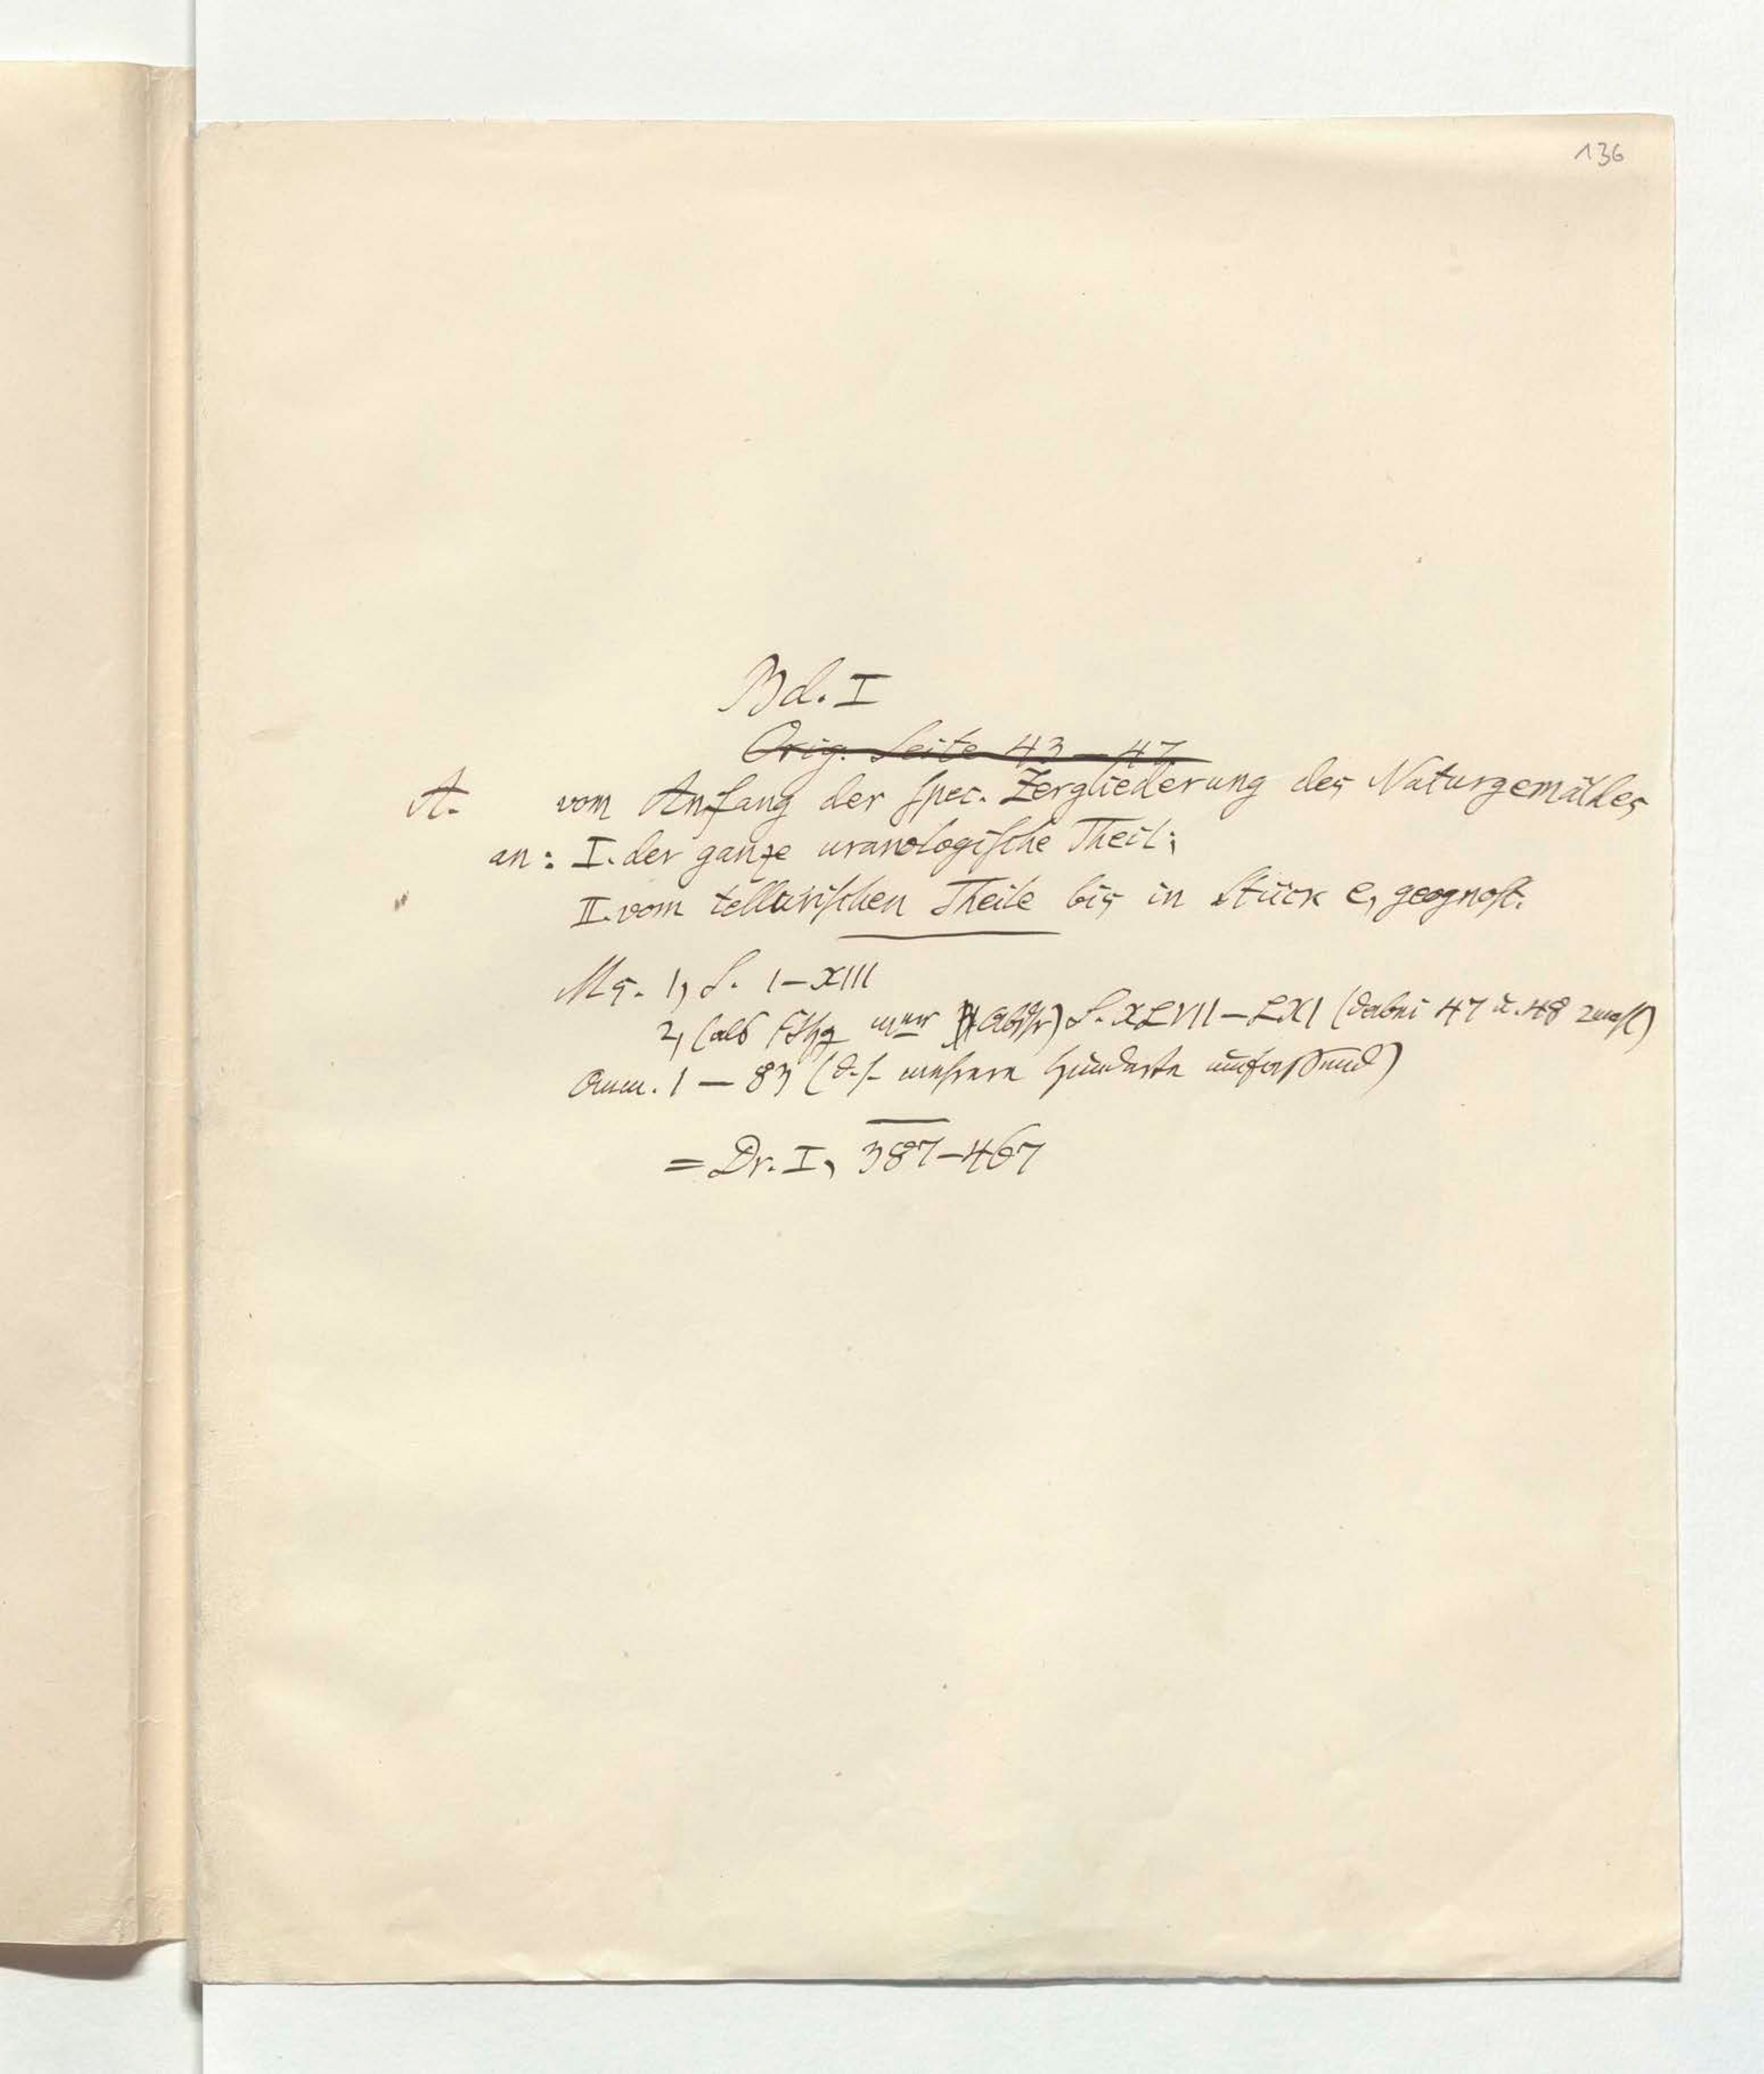 136
Bd. I
Orig. Seite 43 – 47
A. vom Anfang der spec. Zergliederung des Naturgemäldes
an: I. der ganze uranologische Theil;
II. vom tellurischen Theile bis in Stück e, geognost.
Ms. 1, S. I–XIII
2, (als S. XLVII–LXI (dabei 47 u. 48 2mahl)
Anm. 1 – 83 (d. h. mehrere Hunderte umfassend)
= Dr. I, 387–467